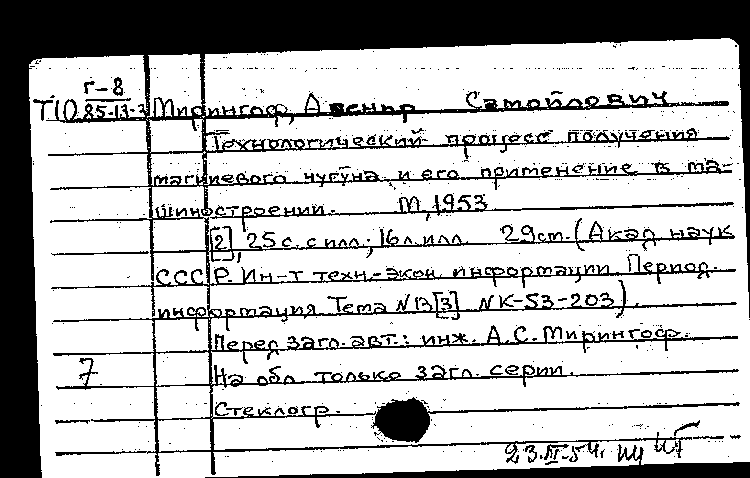 Г-8
Т10 85-13-3 Мирингоф, Авенир Самойлович
Технологический процесс получения
магниевого чугуна и его применение в ма-
шиностроении. М, 1953
[2], 25 с. с илл.; 16 л. илл. 29 см. (Акад. наук
СССР. Ин-т техн.-экон. информации. Период.
информация Тема N 13 [3] NК-53-203).
Перед загл. авт.: инж. А.С. Мирингоф.
7 На обл. только загл. серии.
Стеклогр.